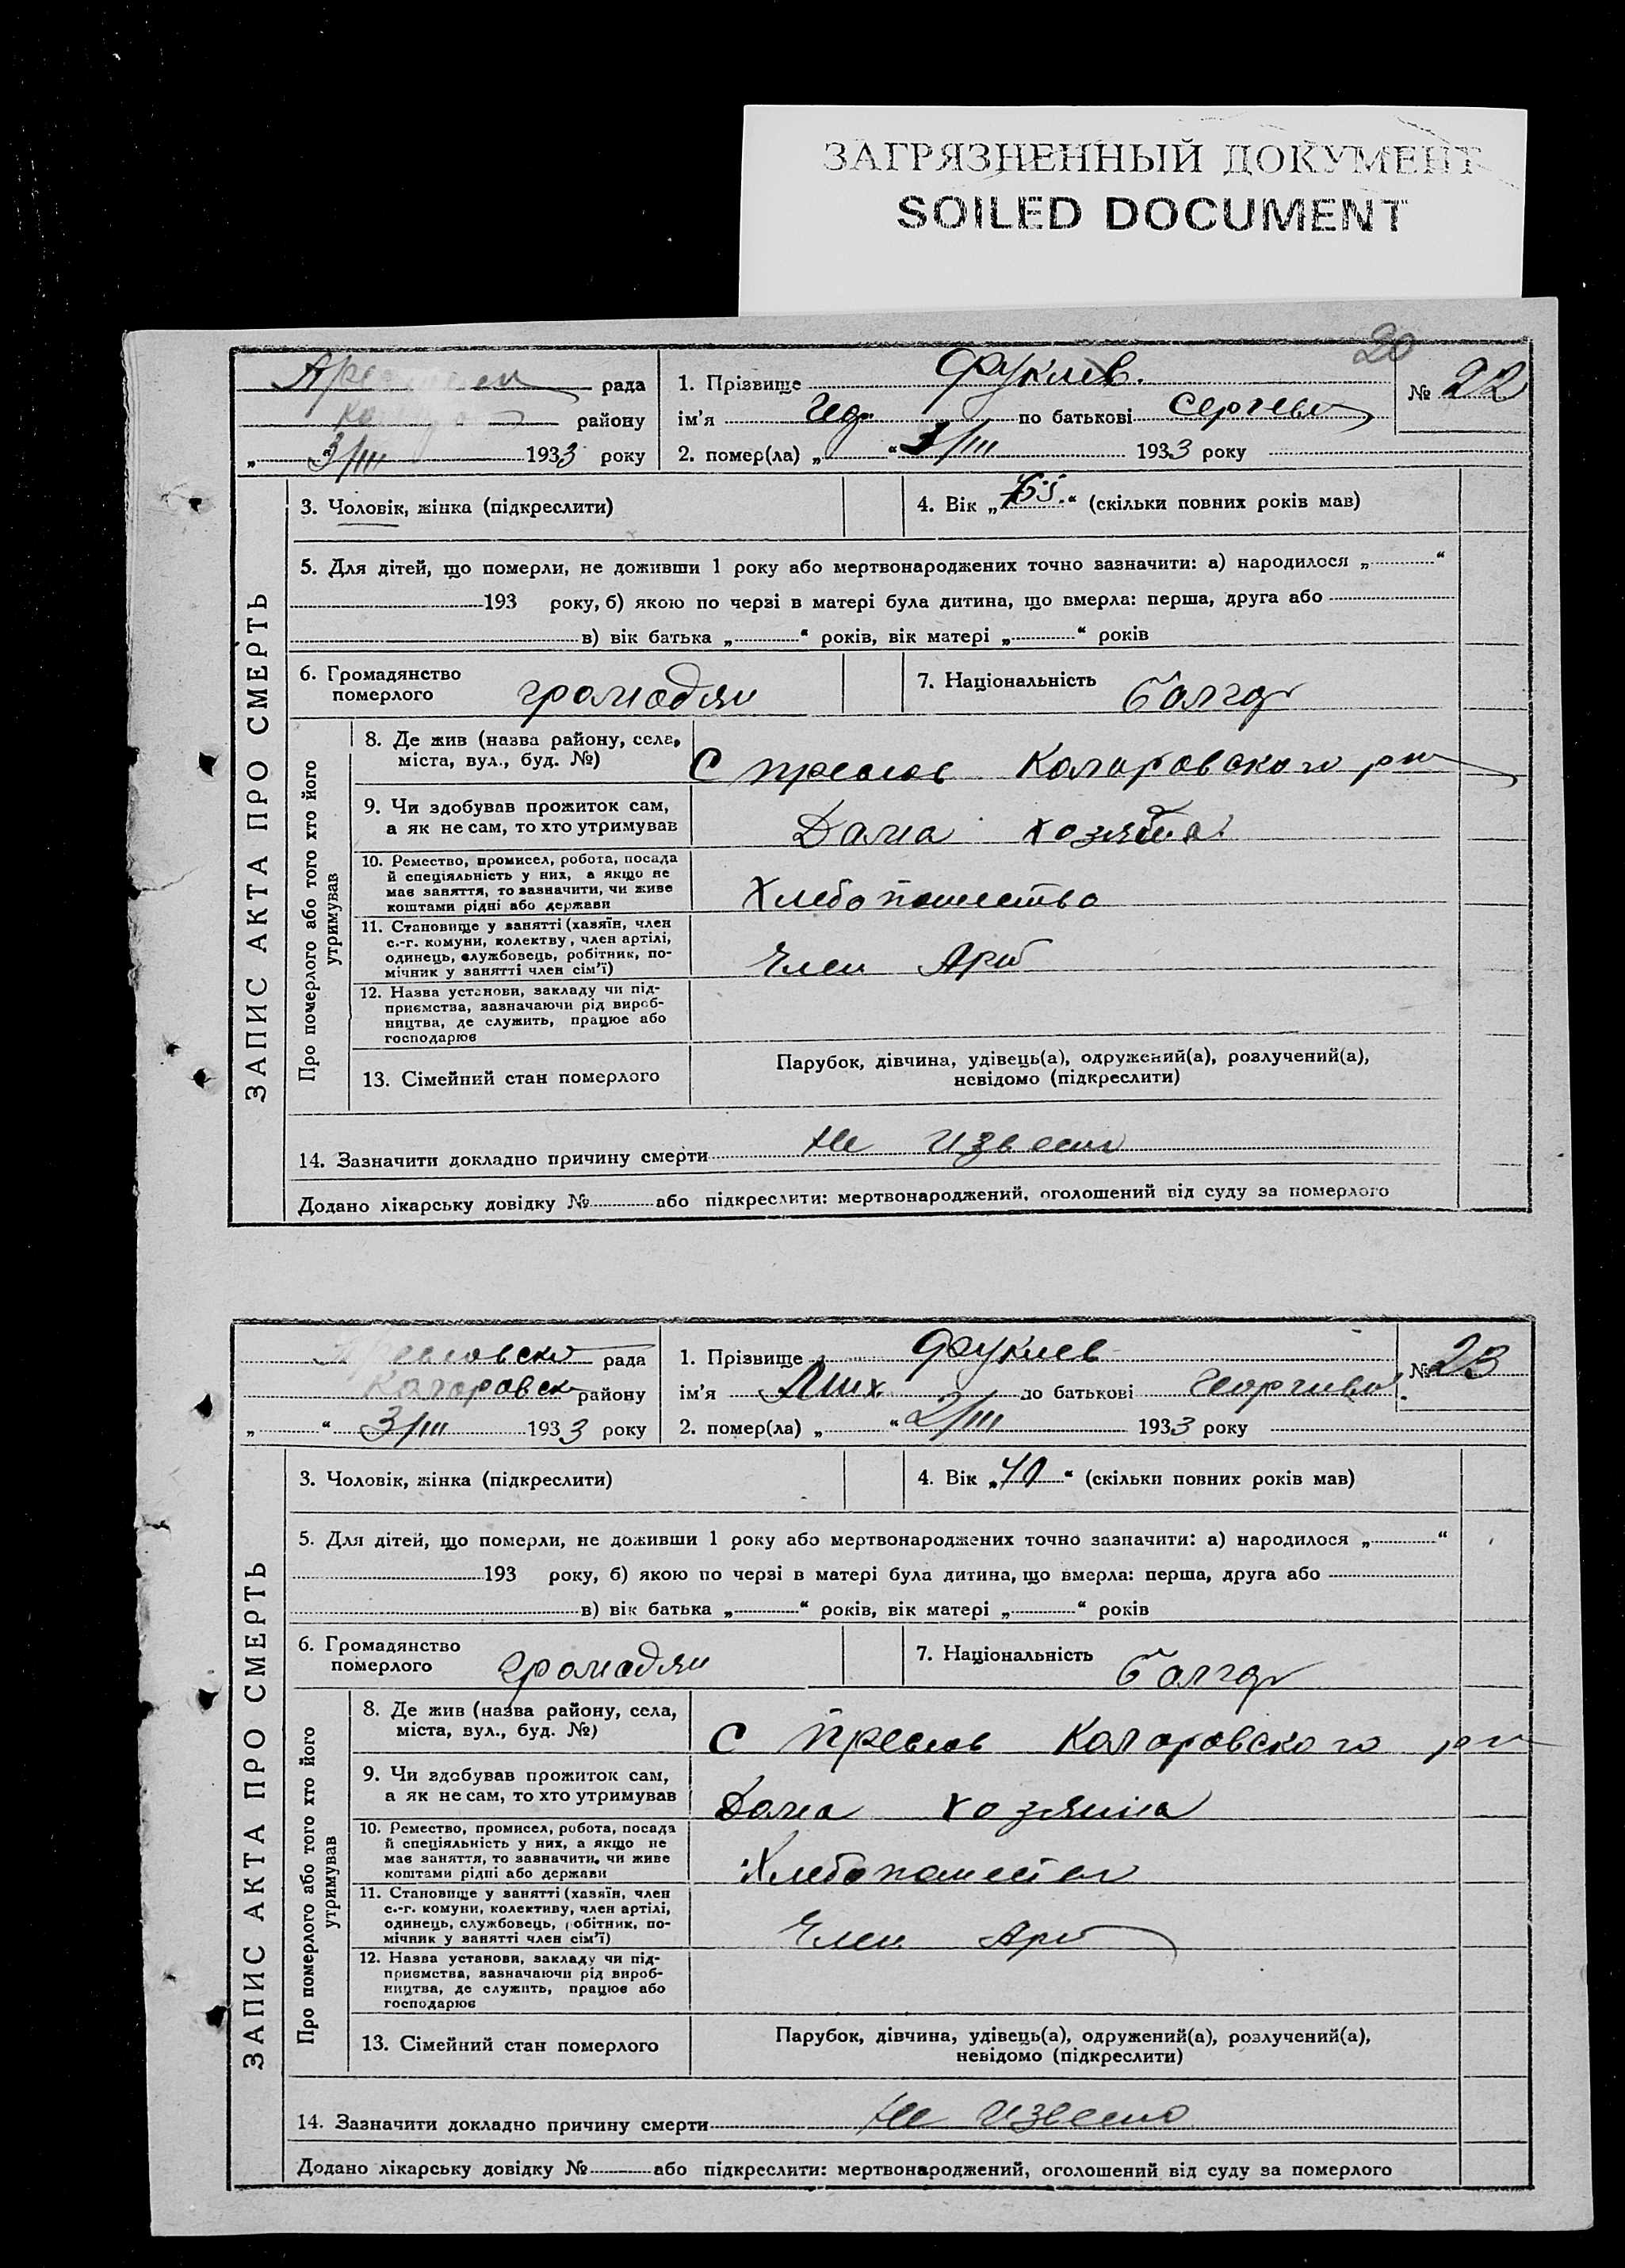 ЗАГРЯЗНЕННЫЙ ДОКУМЕНТ
SOILED DOCUMENT
20
рада
району
„ “ 3/III 1933 року
1. Прізвище Фукиев.
№ 22
ім'я по батькові Сергеев
2. помер(ла) „ “ 3/III 1933 року
ЗАПИС АКТА ПРО СМЕРТЬ
3. Чоловік, жінка (підкреслити)
4. Вік „ “ (скільки повних років мав)
5. Для дітей, що померли, не доживши 1 року або мертвонароджених точно зазначити: а) народилося „ “
193 року, б) якою по черзі в матері була дитина, що вмерла: перша, друга або
в) вік батька „ “ років, вік матері „ “ років
6. Громадянство
померлого
громадян
7. Національність болгар
Про померлого або того хто його
утримував
8. Де жив (назва району, села,
міста, вул., буд. №)
С Преслов Коларовского рн
9. Чи здобував прожиток сам,
а як не сам, то хто утримував
Дома хозяина
10. Ремество, промисел, робота, посада
й спеціяльність у них, а якщо не
має заняття, то зазначити, чи живе
коштами рідні або держави
Хлебопашество
11. Становище у занятті (хазяїн, член
с.-г. комуни, колектву, член артілі,
одинець, службовець, робітник, по-
мічник у занятті член сім'ї)
Член Арт
12. Назва установи, закладу чи під-
приємства, зазначаючи рід вироб-
ництва, де служить, працює або
господарює
13. Сімейний стан померлого
Парубок, дівчина, удівець(а), одружений(а), розлучений(а),
невідомо (підкреслити)
14. Зазначити докладно причину смерти Не извест
Додано лікарську довідку № або підкреслити: мертвонароджений, оголошений від суду за померлого
Пресловско рада
Коларовск району
„ “ 3/III 1933 року
1. Прізвище Фукиев
№ 23
ім'я Мих. по батькові Георгиев.
2. помер(ла) „ “ 2/III 1933 року
ЗАПИС АКТА ПРО СМЕРТЬ
3. Чоловік, жінка (підкреслити)
4. Вік „ “ (скільки повних років мав)
5. Для дітей, що померли, не доживши 1 року або мертвонароджених точно зазначити: а) народилося „ “
193 року, б) якою по черзі в матері була дитина, що вмерла: перша, друга або
в) вік батька „ “ років, вік матері „ “ років
6. Громадянство
померлого
громадян
7. Національність болгар
Про померлого або того хто його
утримував
8. Де жив (назва району, села,
міста, вул., буд. №)
С Преслов Коларовского рн
9. Чи здобував прожиток сам,
а як не сам, то хто утримував
Дома хозяина
10. Ремество, промисел, робота, посада
й спеціяльність у них, а якщо не
має заняття, то зазначити, чи живе
коштами рідні або держави
Хлебопашест
11. Становище у занятті (хазяїн, член
с.-г. комуни, колективу, член артілі,
одинець, службовець, робітник, по-
мічник у занятті член сім'ї)
Член Арт
12. Назва установи, закладу чи під-
приємства, зазначаючи рід вироб-
ництва, де служить, працює або
господарює
13. Сімейний стан померлого
Парубок, дівчина, удівець(а), одружений(а), розлучений(а),
невідомо (підкреслити)
14. Зазначити докладно причину смерти Не извесно
Додано лікарську довідку № або підкреслити: мертвонароджений, оголошений від суду за померлого